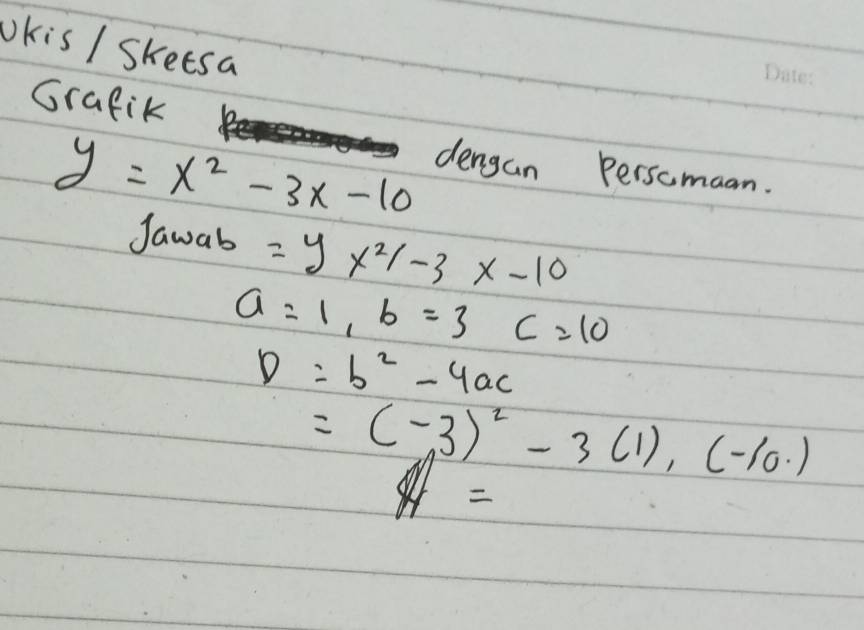 ukis / Sketsa
Date:
Grafik dengan Persamaan.
y = x² - 3x - 10
Jawab = y x²/-3 x - 10
a = 1, b = 3 c = 10
D = b² - 4ac
= (-3)² - 3 (1), (-10.)
=